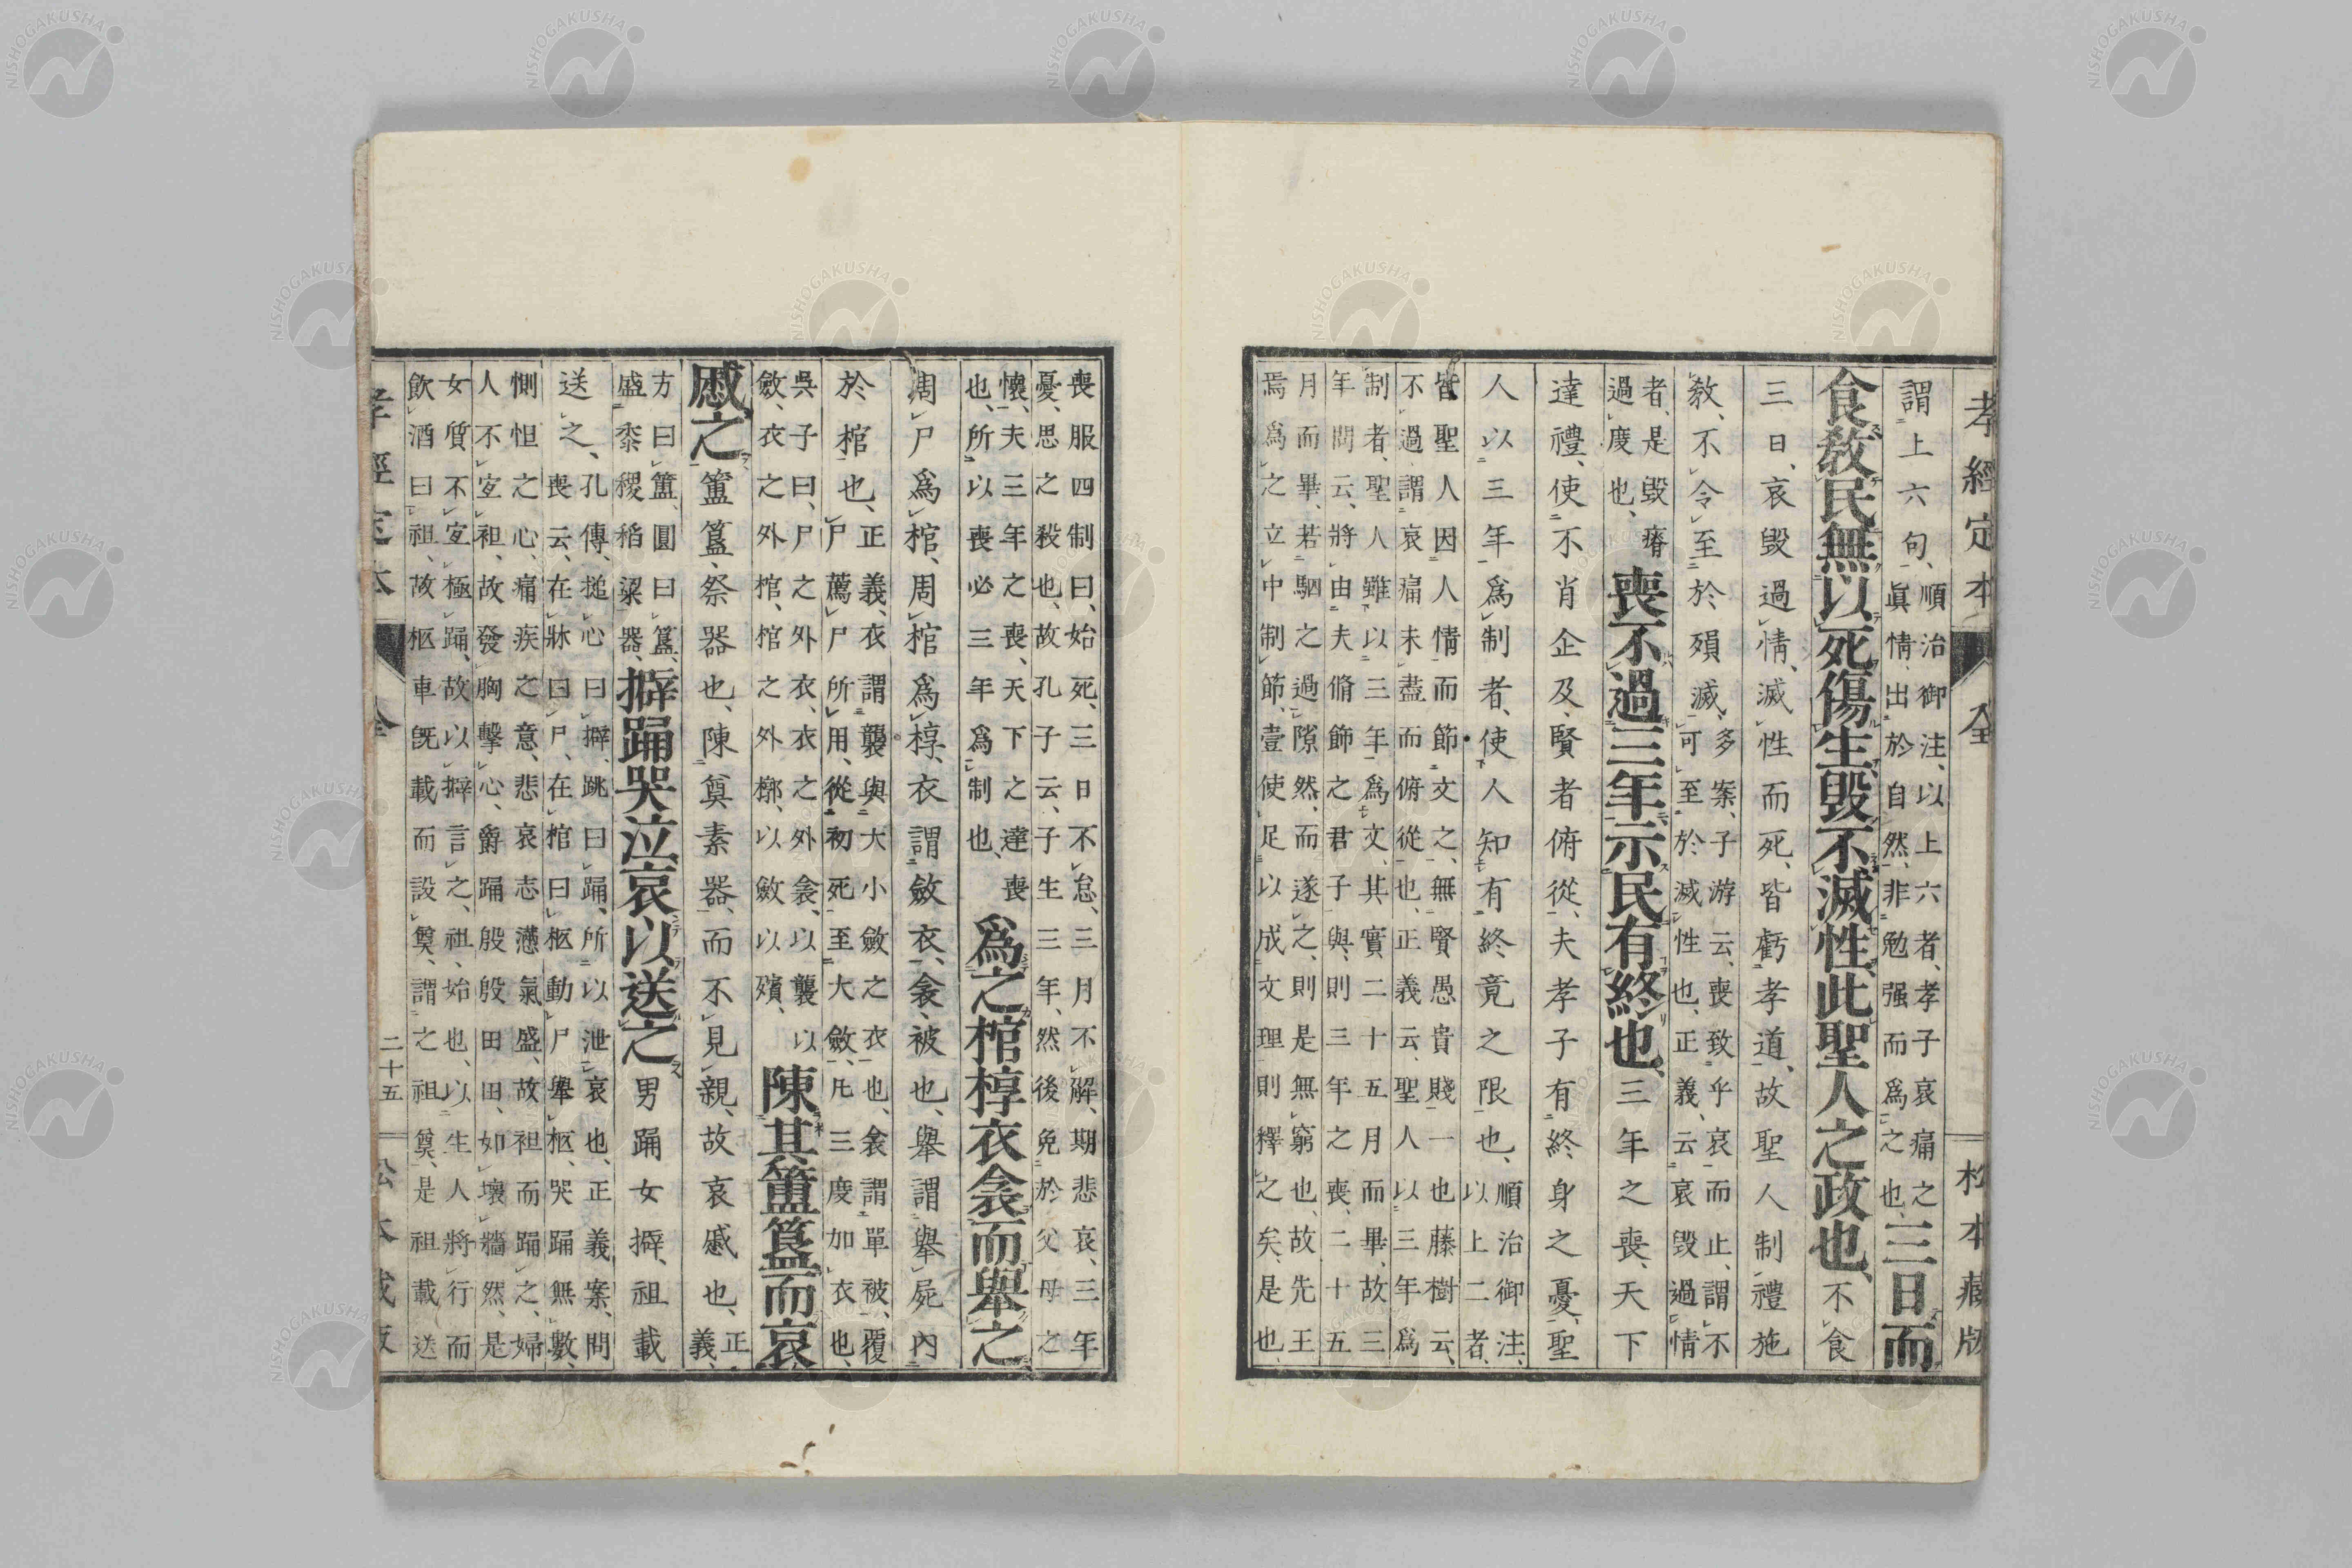 孝經定本 全 松本藏版
謂上六句、順治御注、以上六者、孝子哀痛之
眞情、出於自然、非勉强而爲之也、三日而
食敎民無以死傷生毀不滅性此聖人之政也、不食
三日、哀毀過情、滅性而死、皆虧孝道、故聖人制禮施
敎、不令至於殞滅、多案、子游云、喪致乎哀而止、謂不
可至於滅性也、正義、云哀毀過情
者、是毀瘠
過度也、喪不過三年示民有終也、三年之喪、天下
達禮、使不肖企及、賢者俯從、夫孝子有終身之憂、聖
人以三年爲制者、使人知有終竟之限也、順治御注、
以上二者、
皆聖人因人情而節文之、無賢愚貴賤一也藤樹云、
不過謂哀痛未盡而俯從也、正義云、聖人以三年爲
制者、聖人雖以三年爲文、其實二十五月而畢、故三
年問云、將由夫脩飾之君子與、則三年之喪、二十五
月而畢、若駟之過隙然、而遂之、則是無窮也、故先王
焉爲之立中制節、壹使足以成文理則釋之矣、是也、
喪服四制曰、始死、三日不怠、三月不解、期悲哀、三年
憂、思之殺也、故孔子云、子生三年、然後免於父母之
懷、夫三年之喪、天下之達喪
也、所以喪必三年爲制也、爲之棺椁衣衾而舉之、
周尸爲棺、周棺爲椁、衣謂斂衣、衾、被也、舉謂舉屍內
於棺也、正義、衣謂襲與大小斂之衣也、衾謂單被、覆
尸薦尸所用、從初死至大斂、凡三度加衣也、
吳子曰、尸之外衣、衣之外衾、以襲以
斂、衣之外棺、棺之外槨、以斂以殯、陳其簠簋而哀
慼之、簠簋、祭器也、陳奠素器、而不見親、故哀慼也、正
義、
方曰簠、圓曰簋、
盛黍稷稻粱器、擗踊哭泣哀以送之男踊女擗、祖載
送之、孔傳、搥心曰擗、跳曰踊、所以泄哀也、正義案、問
喪云、在牀曰尸、在棺曰柩動尸舉柩、哭踊無數、
惻怛之心、痛疾之意、悲哀志懣氣盛、故袒而踊之、婦
人不宜袒、故發胸擊心、爵踊殷殷田田、如壞牆然、是
女質不宜極踊、故以擗言之、祖、始也、以生人將行而
飮酒曰祖、故柩車旣載而設奠、謂之祖奠、是祖載送
孝經定本 全 二十五 松本藏版